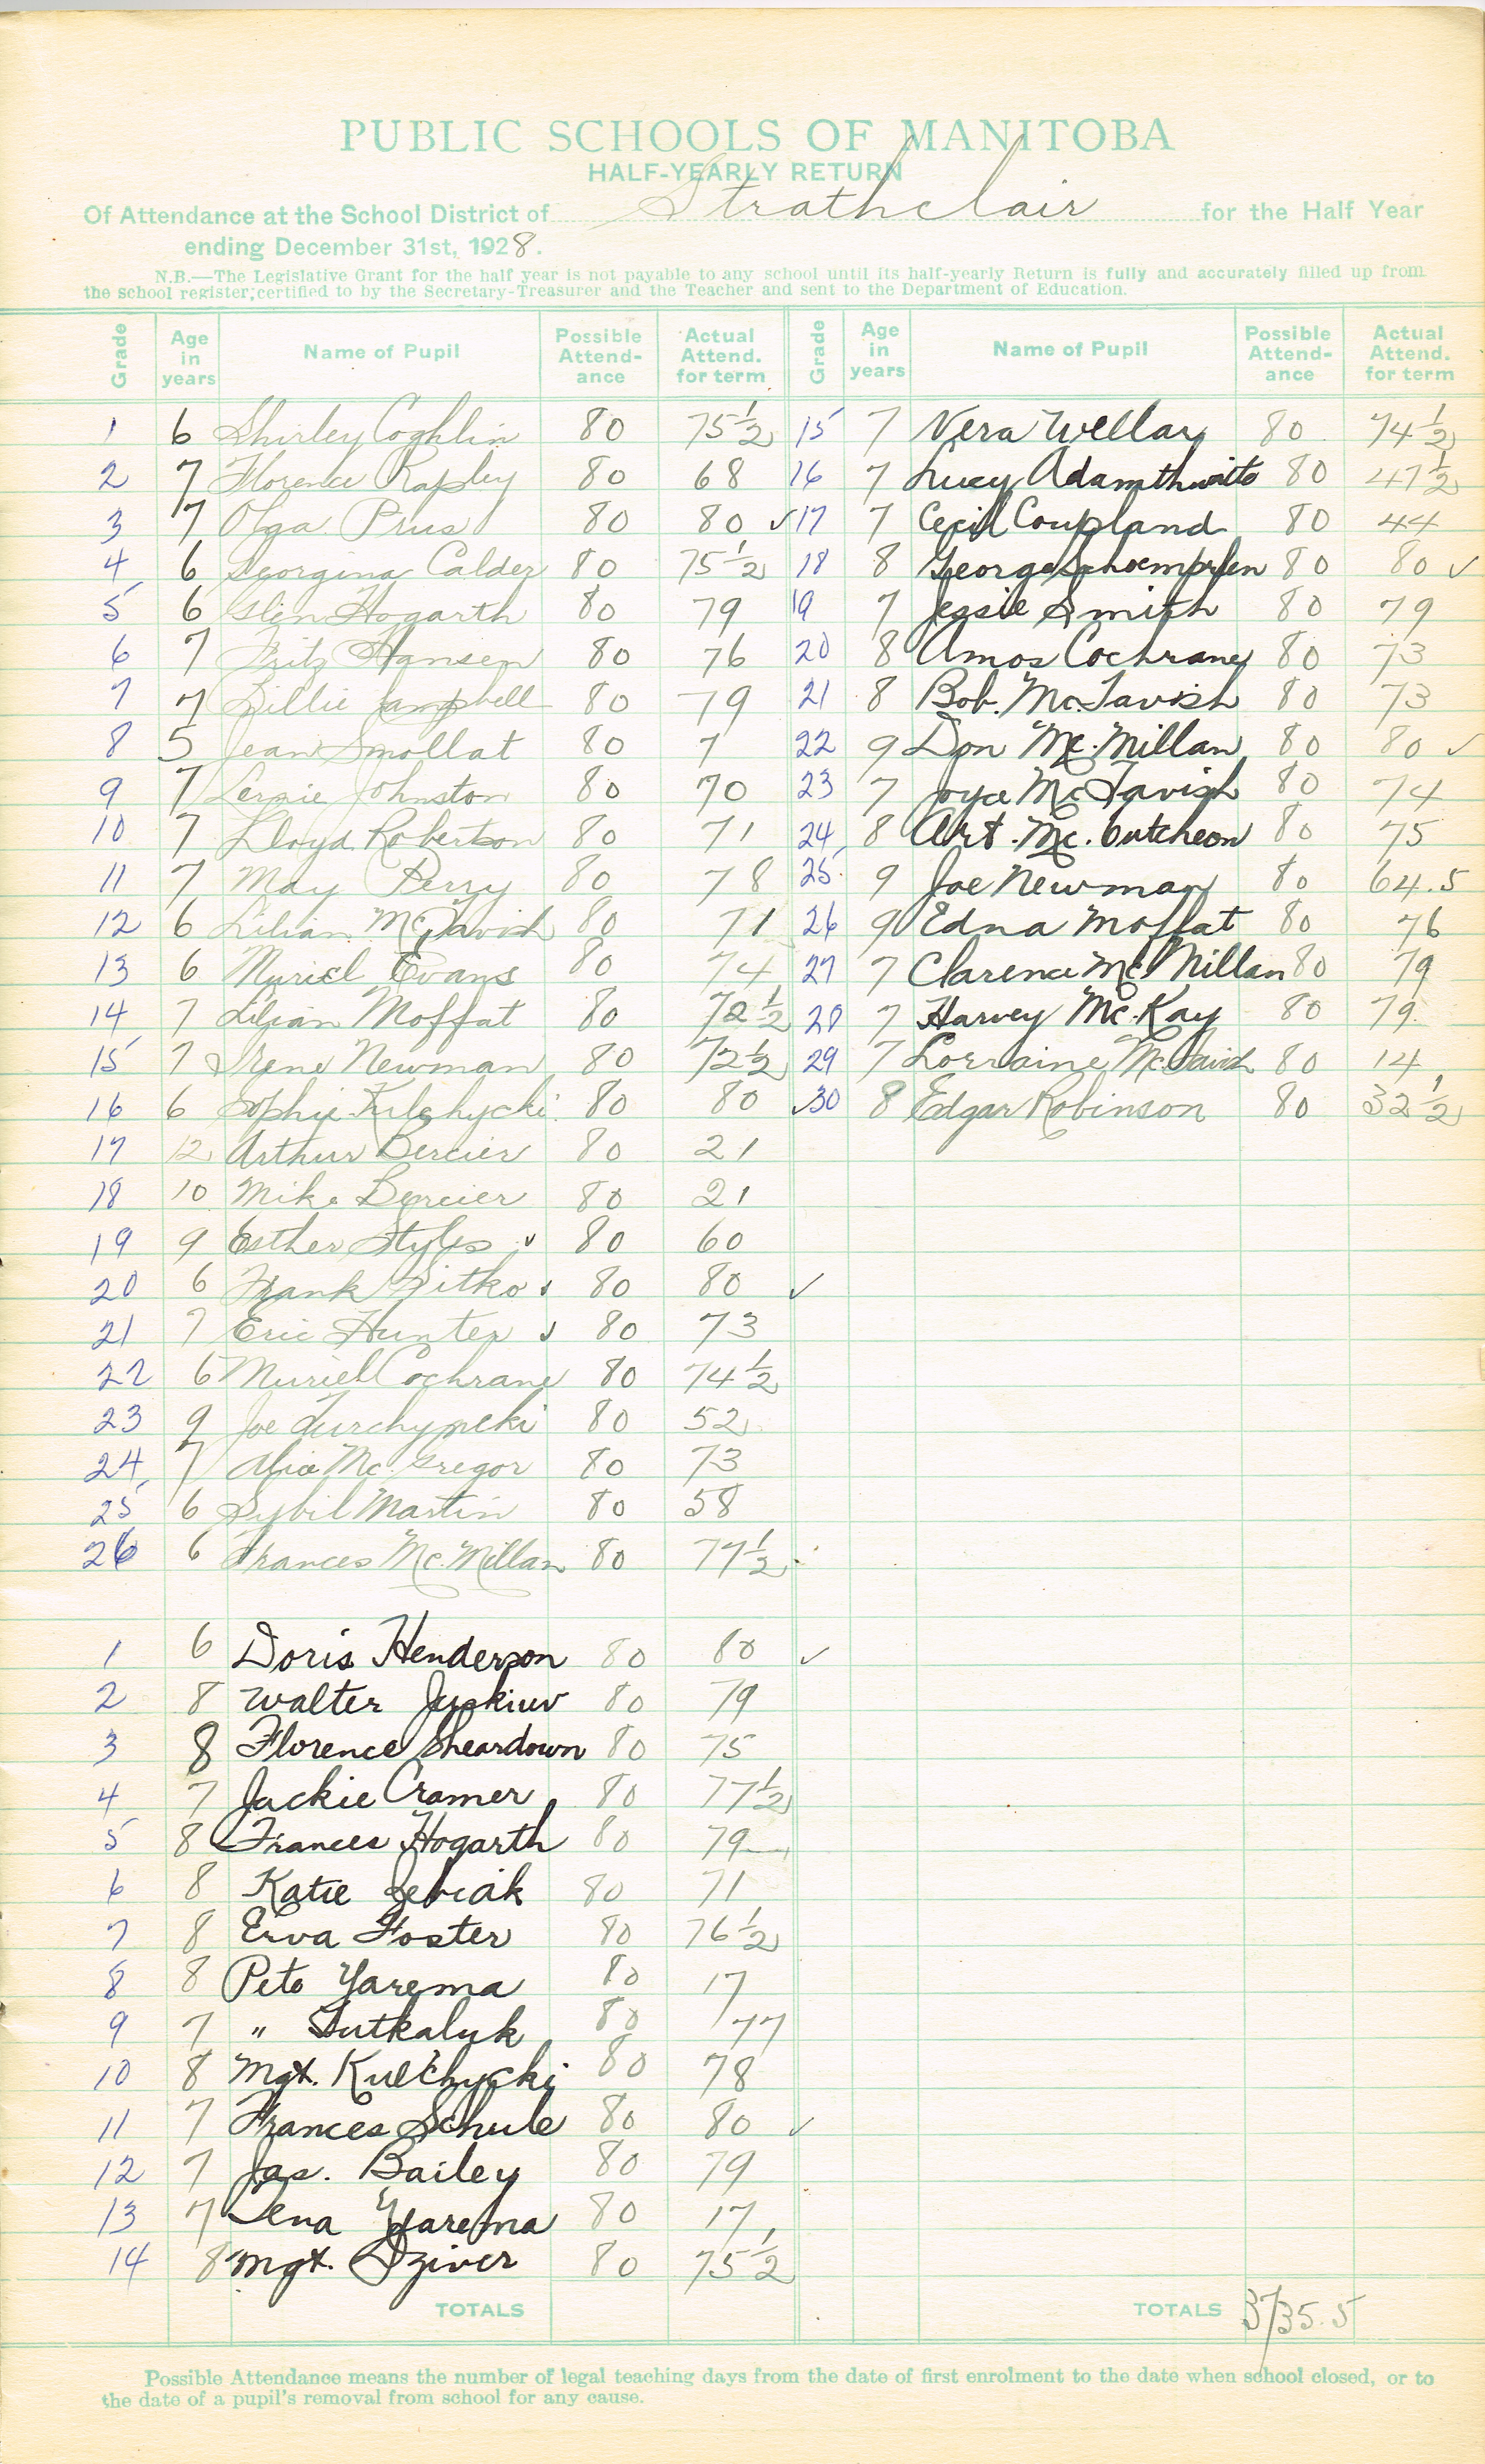 PUBLIC SCHOOLS OF MANITOBA
HALF-YEARLY RETURN
Of Attendance at the School District of Strathclair for the Half Year
ending December 31st, 1928.
N.B.—The Legislative Grant for the half year is not payable to any school until its half-yearly Return is fully and accurately filled up from
the school register, certified to by the Secretary-Treasurer and the Teacher and sent to the Department of Education.
Grade Age in years Name of Pupil Possible Attend-ance Actual Attend. for term Grade Age in years Name of Pupil Possible Attend-ance Actual Attend. for term
1 6 Shirley Coghlin 80 75½ 15 7 Vera Wellar 80 74½
2 7 Florence Rapley 80 68 16 7 Lucy Adamthwaite 80 47½
3 7 Olga Prus 80 80 ✓ 17 7 Cecil Coupland 80 44
4 6 Georgina Calder 80 75½ 18 8 George Schoempflen 80 80 ✓
5 6 Glen Hogarth 80 79 19 7 Jessie Smith 80 79
6 7 Fritz Hansen 80 76 20 8 Amos Cochrane 80 73
7 7 Lillie Campbell 80 79 21 8 Bob. McTavish 80 73
8 5 Jean Smollat 80 7 22 9 Don Mc.Millan 80 80 ✓
9 7 Johnston 80 70 23 7 Joyce McTavish 80 74
10 7 Lloyd Robertson 80 71 24 8 Art. Mc.Cutcheon 80 75
11 7 May Perry 80 78 25 9 Joe Newman 80 64.5
12 6 Lilian McTavish 80 71 26 9 Edna Moffat 80 76
13 6 Muriel Evans 80 74 27 7 Clarence McMillan 80 79
14 7 Lilian Moffat 80 72½ 28 7 Harvey Mc.Kay 80 79
15 7 Irene Newman 80 72½ 29 7 Lorraine McTavish 80 14
16 6 Sophie Kulchycki 80 80 ✓ 30 8 Edgar Robinson 80 32½
17 12 Arthur Bercier 80 21
18 10 Mike Bercier 80 21
19 9 Esther Styles ✓ 80 60
20 6 Frank Sitko ✓ 80 80 ✓
21 7 Eric Hunter ✓ 80 73
22 6 Muriel Cochrane 80 74½
23 9 Joe 80 52
24 7 Alice Mc.Gregor 80 73
25 6 Sybil Martin 80 58
26 6 Frances Mc.Millan 80 77½
1 6 Doris Henderson 80 80 ✓
2 8 Walter 80 79
3 8 Florence Sheardown 80 75
4 7 Jackie Cramer 80 77½
5 8 Frances Hogarth 80 79
6 8 Katie 80 71
7 8 Erva Foster 80 76½
8 8 Pete Yarema 80 17
9 7 " Tutkaluk 80 77
10 8 Mgt. Kulchycki 80 78
11 7 Frances Schule 80 80 ✓
12 7 Jas. Bailey 80 79
13 7 Lena Yarema 80 17
14 8 Mgt. Dziver 80 75½
TOTALS TOTALS 3735.5
Possible Attendance means the number of legal teaching days from the date of first enrolment to the date when school closed, or to
the date of a pupil's removal from school for any cause.